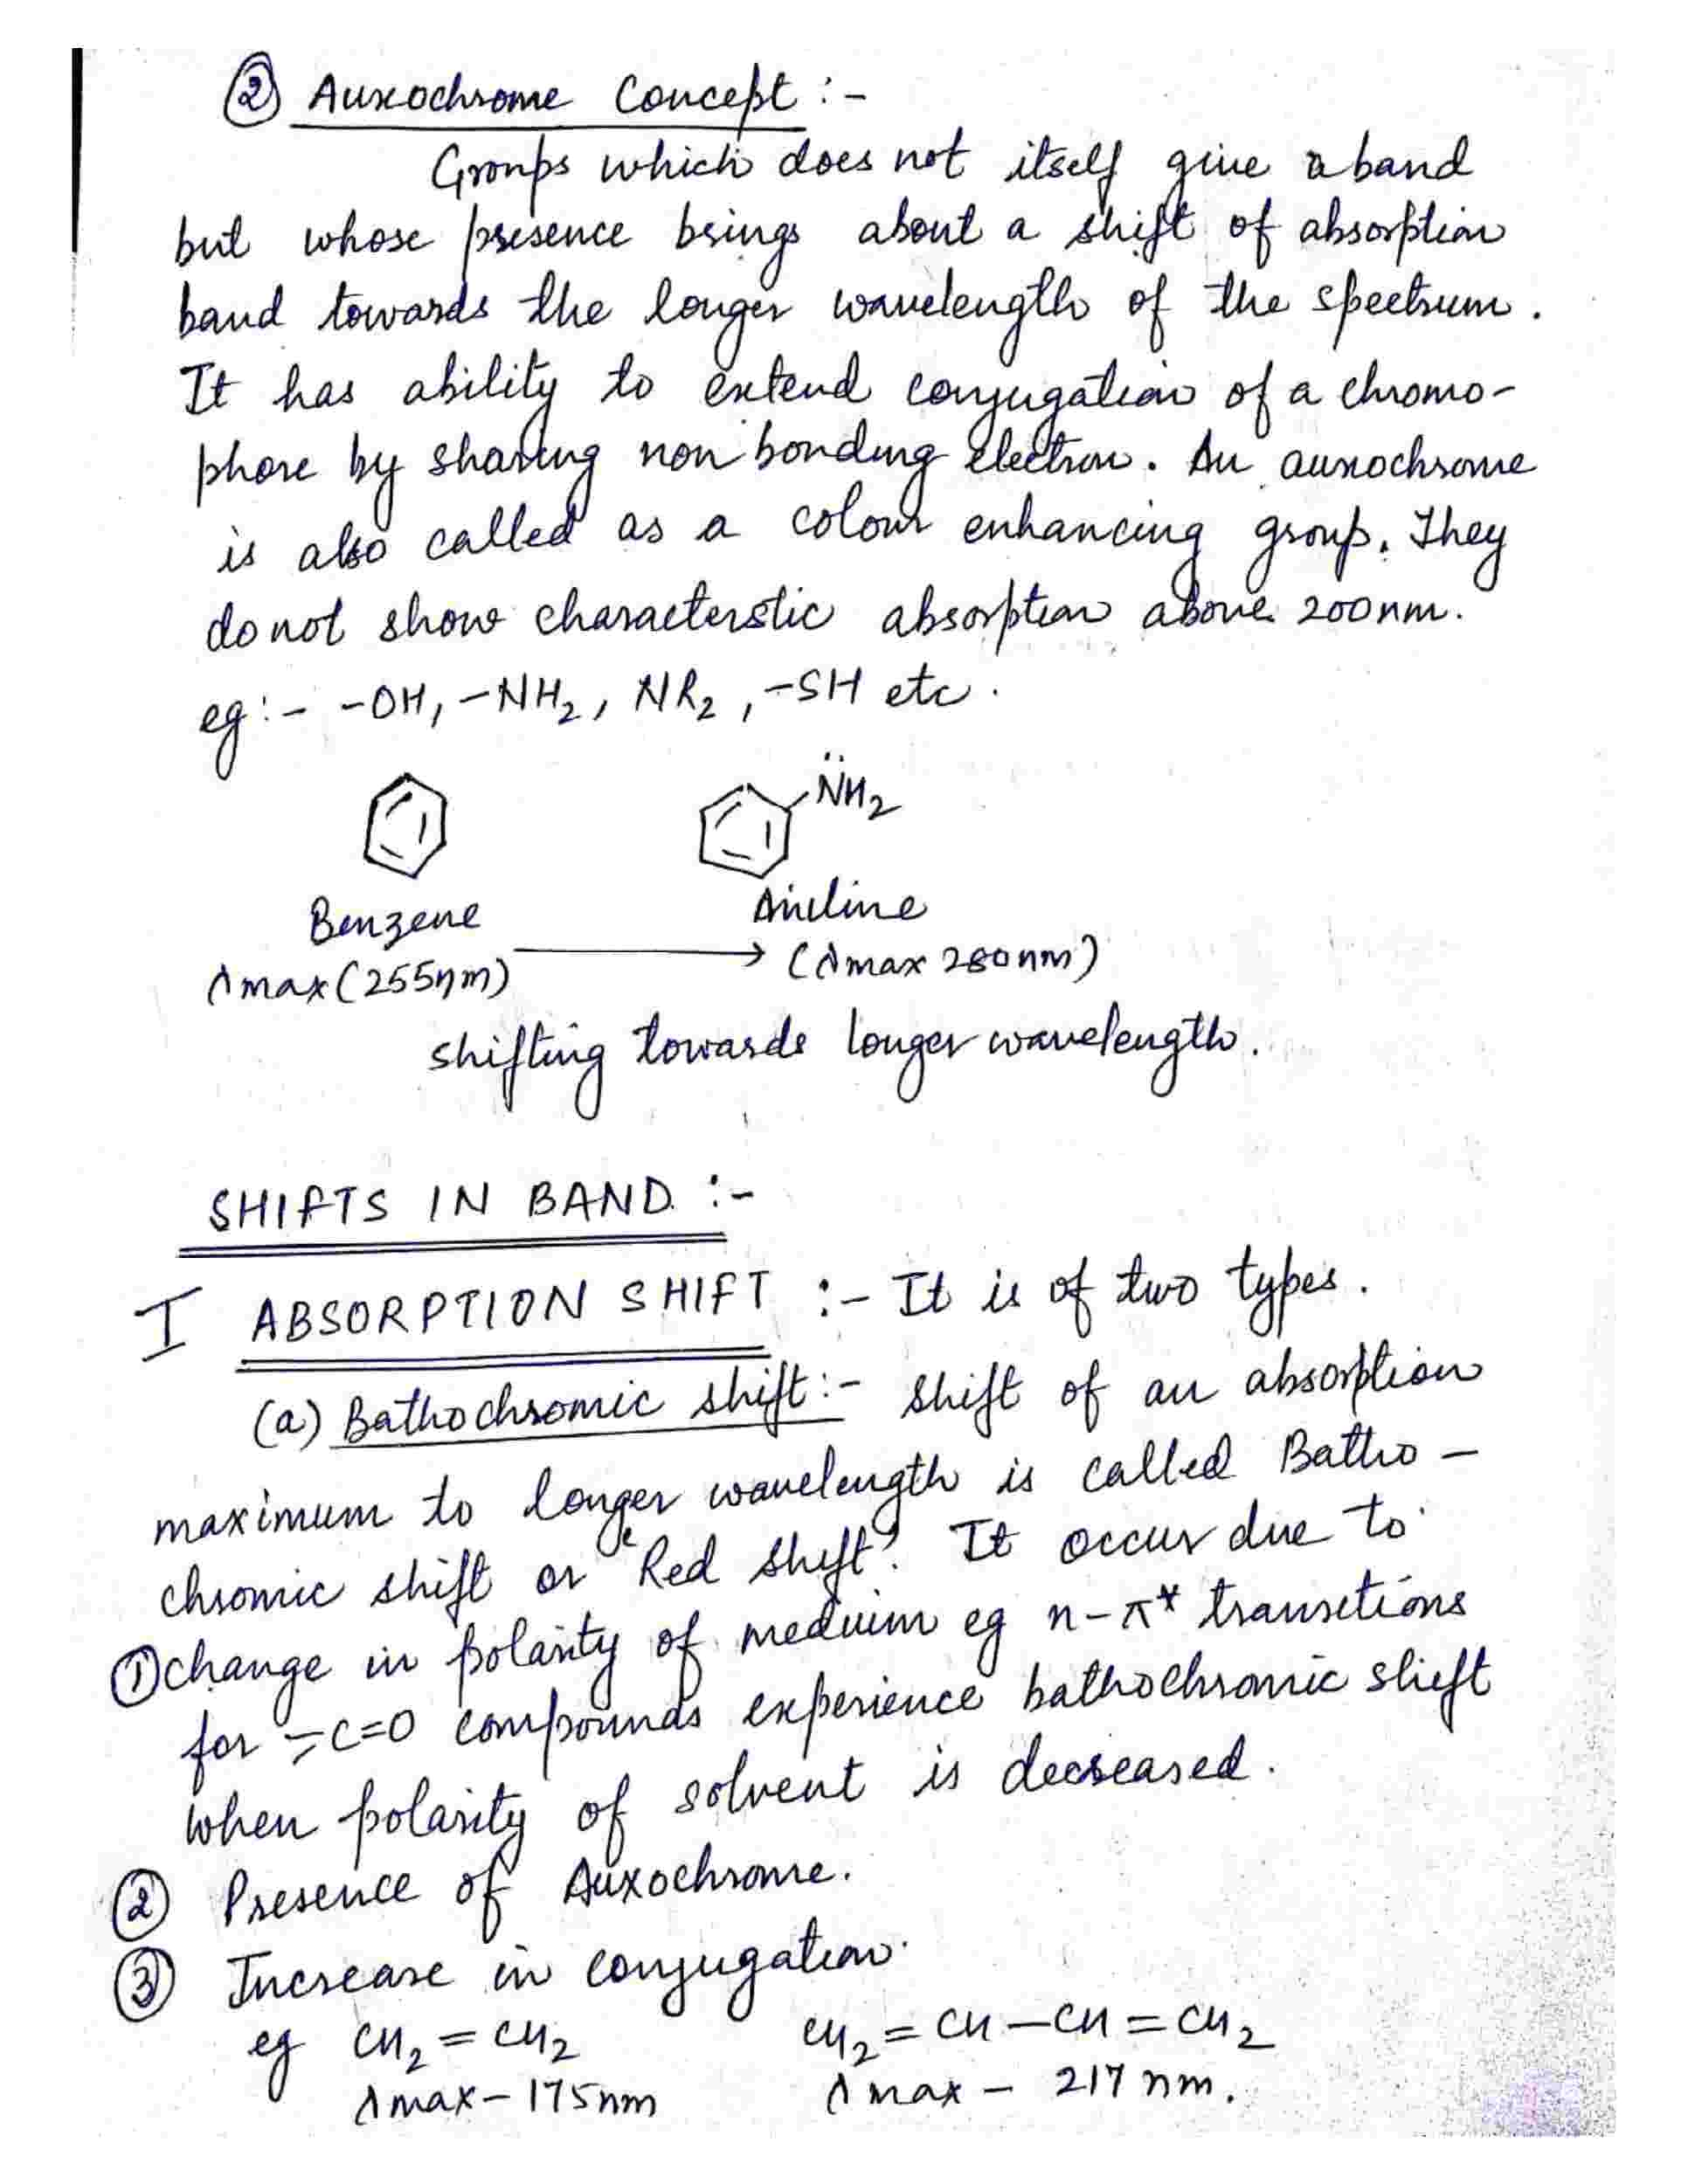 ② Auxochrome Concept :-
Groups which does not itself give a band
but whose presence brings about a shift of absorption
band towards the longer wavelength of the spectrum.
It has ability to extend conjugation of a chromo-
phore by sharing non bonding electron. An auxochrome
is also called as a colour enhancing group. They
do not show characterstic absorption above 200nm.
eg :- -OH, -NH2, NR2, -SH etc.
N̈H2
Benzene Aniline
λmax (255nm) → (λmax 280nm)
shifting towards longer wavelength.
SHIFTS IN BAND :-
I ABSORPTION SHIFT :- It is of two types.
(a) Bathochromic shift :- shift of an absorption
maximum to longer wavelength is called Batho-
chromic shift or 'Red shift'. It occur due to
① change in polarity of medium eg n-π* transitions
for >C=O compounds experience bathochromic shift
when polarity of solvent is decreased.
② Presence of Auxochrome.
③ Increase in conjugation.
eg CH2=CH2 CH2=CH-CH=CH2
λmax - 175nm λmax - 217 nm.